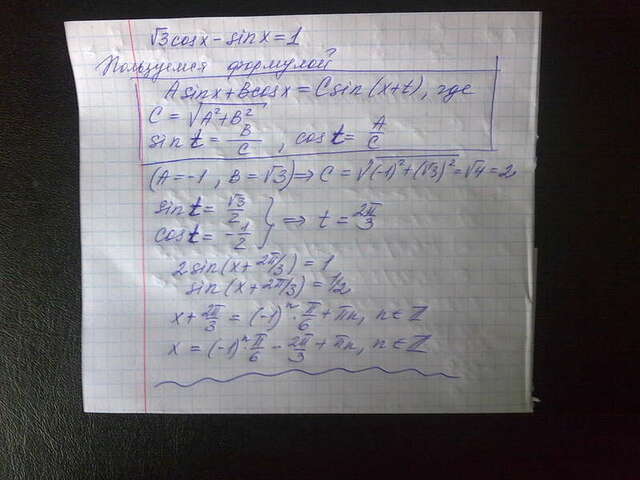 √3cosx - sinx = 1
Пользуемся формулой
Asinx + Bcosx = Csin(x+t), где
C = √(A²+B²)
sint = B/C, cost = A/C
(A = -1, B = √3) ⇒ C = √((-1)²+(√3)²) = √4 = 2
sint = √3/2
cost = -1/2 } ⇒ t = 2π/3
2sin(x + 2π/3) = 1
sin(x + 2π/3) = 1/2
x + 2π/3 = (-1)ⁿ · π/6 + πn, n ∈ ℤ
x = (-1)ⁿ · π/6 - 2π/3 + πn, n ∈ ℤ